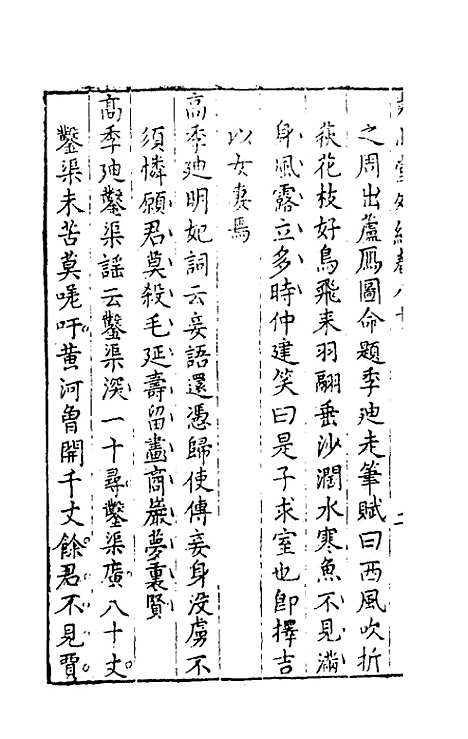 之周出蘆鴈圖命題季迪走筆賦曰西風吹折
荻花枝好鳥飛来羽翮垂沙濶水寒魚不見滿
身風露立多時仲建笑曰是子求室也卽擇吉
以女妻焉
高季迪明妃詞云妾語還憑歸使傳妾身没虜不
須憐願君莫殺毛延壽留畫商巖夢裏賢
高季迪鑿渠謡云鑿渠深一十尋鑿渠廣八十丈
鑿渠未苦莫嗟吁黄河曽開千丈餘君不見賈